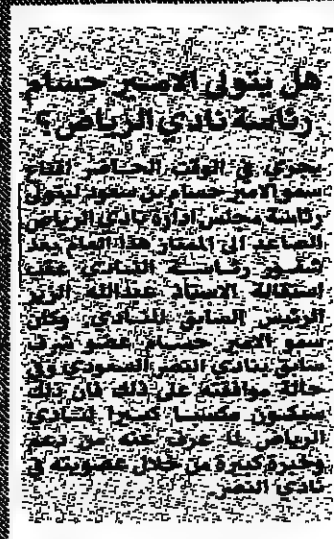 هل يتولى الامير حسام
رئاسة نادي الرياض؟
يجري في الوقت الحاضر اقناع
سمو الامير حسام بن سعود ليتولى
رئاسة مجلس ادارة نادي الرياض
الصاعد الى الممتاز هذا العام بعد
شغور رئاسة النادي عقب
استقالة الاستاذ عبدالله الزير
الرئيس السابق للنادي. وكان
سمو الامير حسام عضو شرف
سابق بنادي النصر السعودي وفي
حالة موافقته على ذلك فان ذلك
سيكون مكسبا كبيرا لنادي
الرياض لما عرف عنه من دعم
وخبرة كبيرة من خلال عضويته في
نادي النصر.